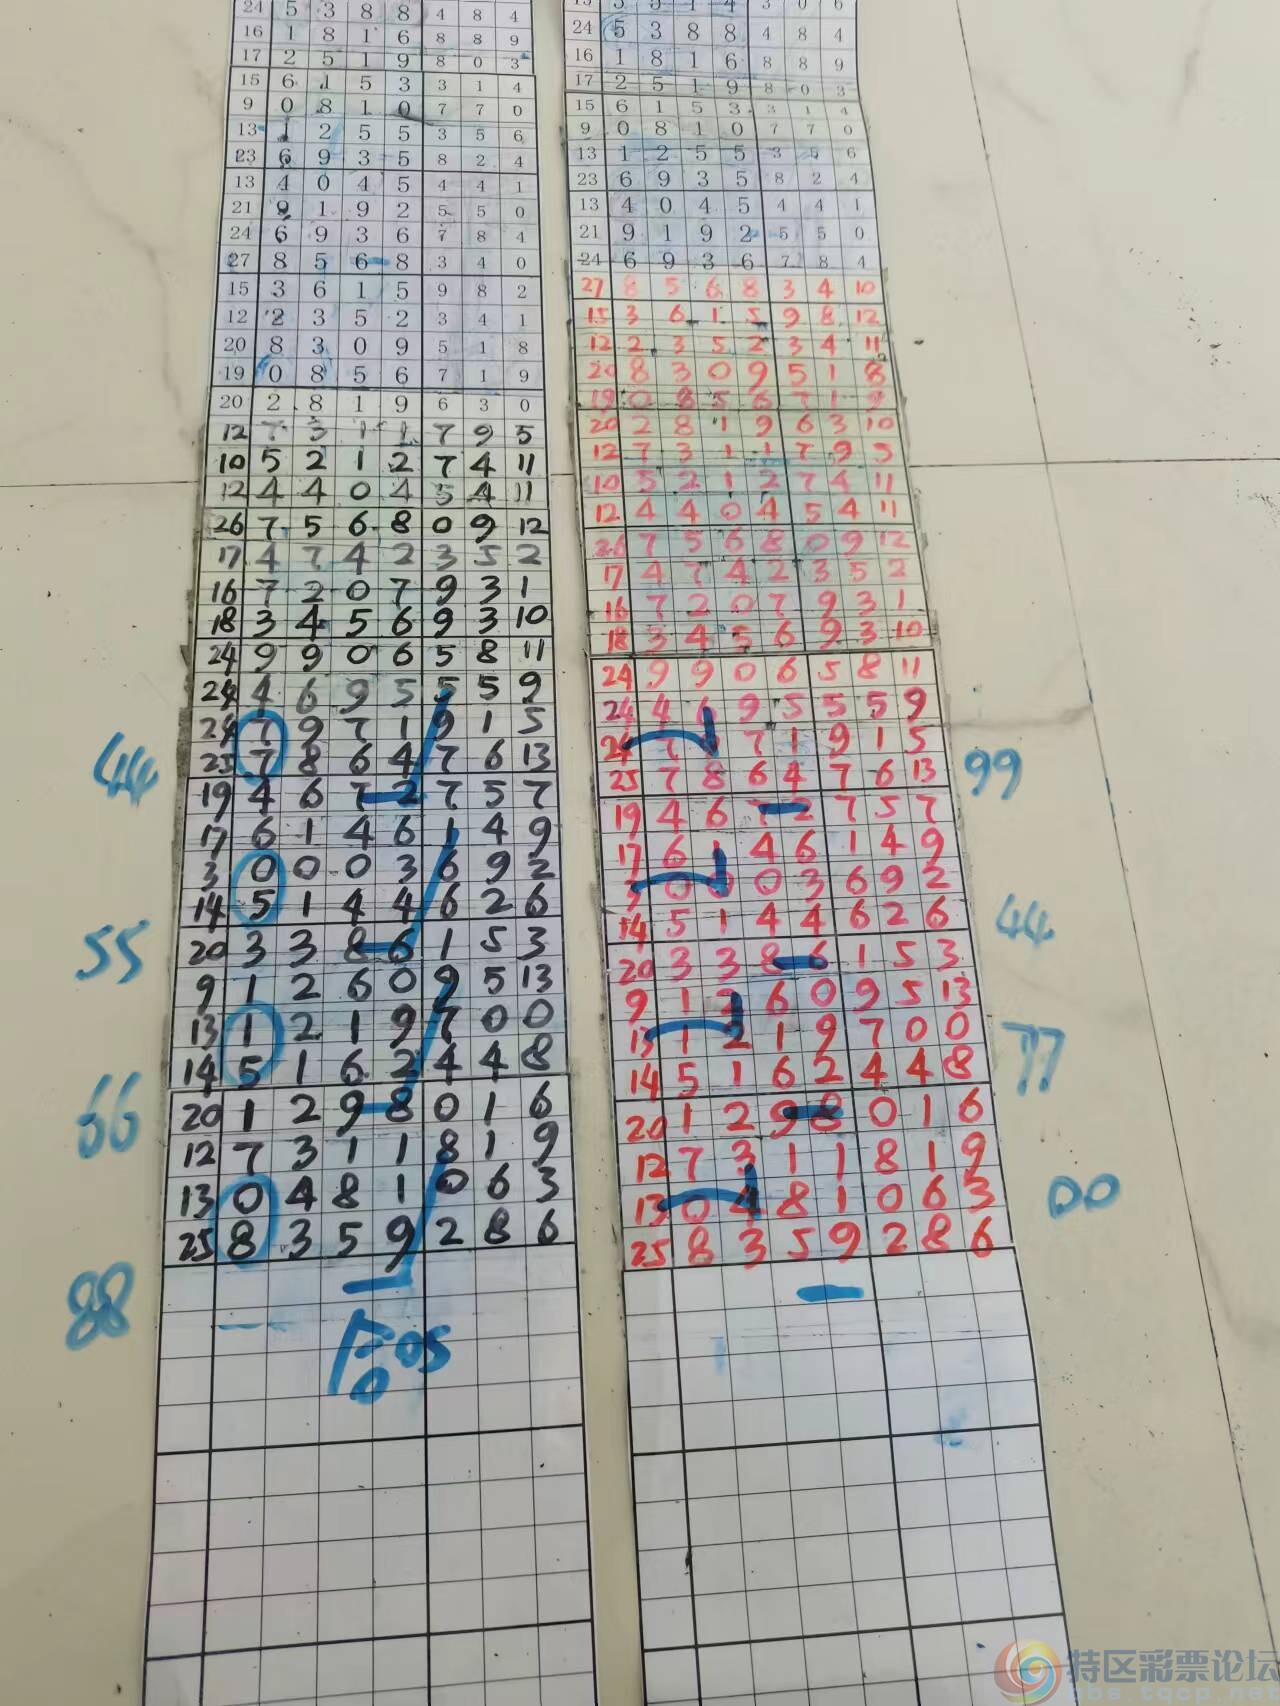 24 5 3 8 8 4 8 4
16 1 8 1 6 8 8 9
17 2 5 1 9 8 0 3
15 6 1 5 3 3 1 4
9 0 8 1 0 7 7 0
13 1 2 5 5 3 5 6
23 6 9 3 5 8 2 4
13 4 0 4 5 4 4 1
21 9 1 9 2 5 5 0
24 6 9 3 6 7 8 4
27 8 5 6 8 3 4 0
15 3 6 1 5 9 8 2
12 2 3 5 2 3 4 1
20 8 3 0 9 5 1 8
19 0 8 5 6 7 1 9
20 2 8 1 9 6 3 0
12 7 3 1 1 7 9 5
10 5 2 1 2 7 4 11
12 4 4 0 4 5 4 11
26 7 5 6 8 0 9 12
17 4 7 4 2 3 5 2
16 7 2 0 7 9 3 1
18 3 4 5 6 9 3 10
24 9 9 0 6 5 8 11
24 4 6 9 5 5 5 9
24 7 9 7 1 9 1 5
25 7 8 6 4 7 6 13
44
19 4 6 7 2 7 5 7
17 6 1 4 6 1 4 9
3 0 0 0 3 6 9 2
14 5 1 4 4 6 2 6
55
20 3 3 8 6 1 5 3
9 1 2 6 0 9 5 13
13 1 2 1 9 7 0 0
14 5 1 6 2 4 4 8
66
20 1 2 9 8 0 1 6
12 7 3 1 1 8 1 9
13 0 4 8 1 0 6 3
25 8 3 5 9 2 8 6
88
05
0
24 5 3 8 8 4 8 4
16 1 8 1 6 8 8 9
17 2 5 1 9 8 0 3
15 6 1 5 3 3 1 4
9 0 8 1 0 7 7 0
13 1 2 5 5 3 5 6
23 6 9 3 5 8 2 4
13 4 0 4 5 4 4 1
21 9 1 9 2 5 5 0
24 6 9 3 6 7 8 4
27 8 5 6 8 3 4 10
15 3 6 1 5 9 8 12
12 2 3 5 2 3 4 11
20 8 3 0 9 5 1 8
19 0 8 5 6 7 1 9
20 2 8 1 9 6 3 10
12 7 3 1 1 7 9 5
10 5 2 1 2 7 4 11
12 4 4 0 4 5 4 11
26 7 5 6 8 0 9 12
17 4 7 4 2 3 5 2
16 7 2 0 7 9 3 1
18 3 4 5 6 9 3 10
24 9 9 0 6 5 8 11
24 4 6 9 5 5 5 9
24 7 7 1 9 1 5
25 7 8 6 4 7 6 13
99
19 4 6 7 2 7 5 7
17 6 1 4 6 1 4 9
3 0 0 0 3 6 9 2
14 5 1 4 4 6 2 6
44
20 3 3 8 6 1 5 3
9 1 2 6 0 9 5 13
13 1 2 1 9 7 0 0
14 5 1 6 2 4 4 8
77
20 1 2 9 8 0 1 6
12 7 3 1 1 8 1 9
13 0 4 8 1 0 6 3
25 8 3 5 9 2 8 6
00
特区彩票论坛
bbs.tqcp.net